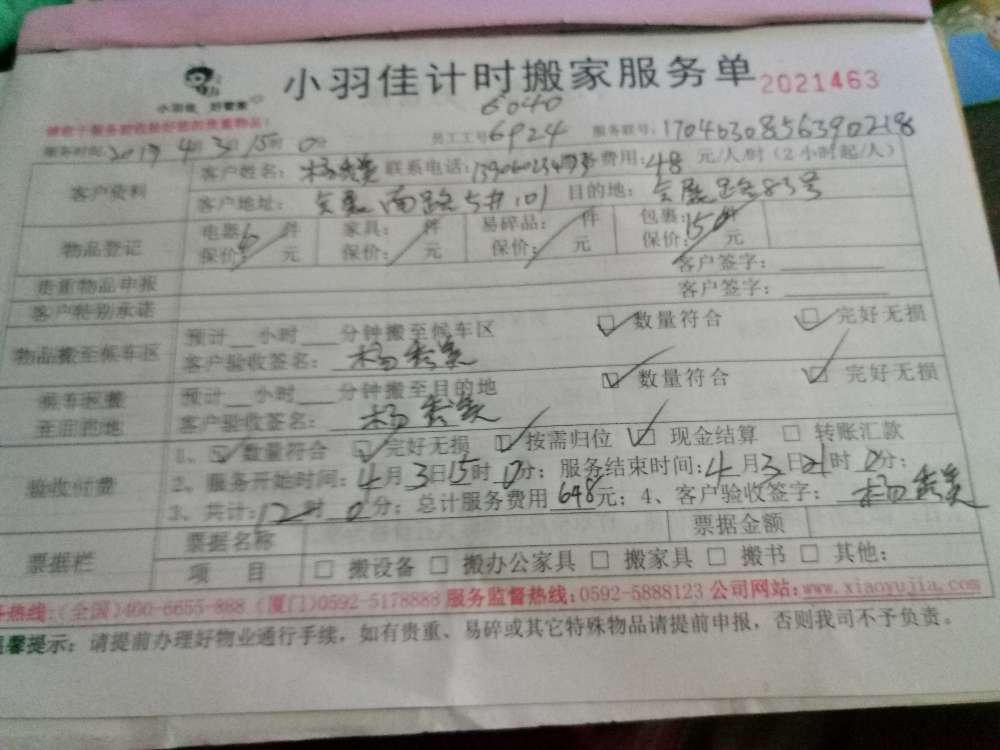 小羽佳计时搬家服务单 2021463
小羽佳 好管家
6040
员工工号: 6924 服务联号: 1704030856390218
服务时间: 2017 4月 3日 15时 0分
客户资料 客户姓名: 杨秀美 联系电话: 费用: 48 元/人/时 (2小时起/人)
客户地址: 南路5井101 目的地: 会展路83号
物品登记 电器 6 件 家具: 件 易碎品: 件 包裹: 15 件
保价: 元 保价: 元 保价: 元 保价: 元
贵重物品申报 客户签字:
客户特别承诺 客户签字:
物品搬至候车区 预计 小时 分钟搬至候车区 数量符合 完好无损
客户验收签名: 杨秀美
候车区搬至目的地 预计 小时 分钟搬至目的地 数量符合 完好无损
客户验收签名: 杨秀美
验收付费 1、数量符合 完好无损 按需归位 现金结算 转账汇款
2、服务开始时间: 4月3日15时0分; 服务结束时间: 4月3日21时0分;
3、共计: 12时0分; 总计服务费用 648 元; 4、客户验收签字: 杨秀美
票据栏 票据名称 票据金额
项目 搬设备 搬办公家具 搬家具 搬书 其他:
热线: (全国)400-6655-888 (厦门)0592-5178888 服务监督热线: 0592-5888123 公司网站: www.xiaoyujia.com
馨提示: 请提前办理好物业通行手续, 如有贵重、易碎或其它特殊物品请提前申报, 否则我司不予负责。